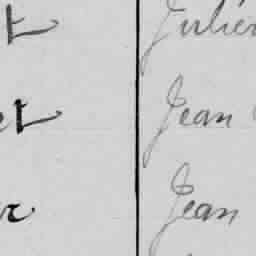 t Julien
et Jean
r Jean